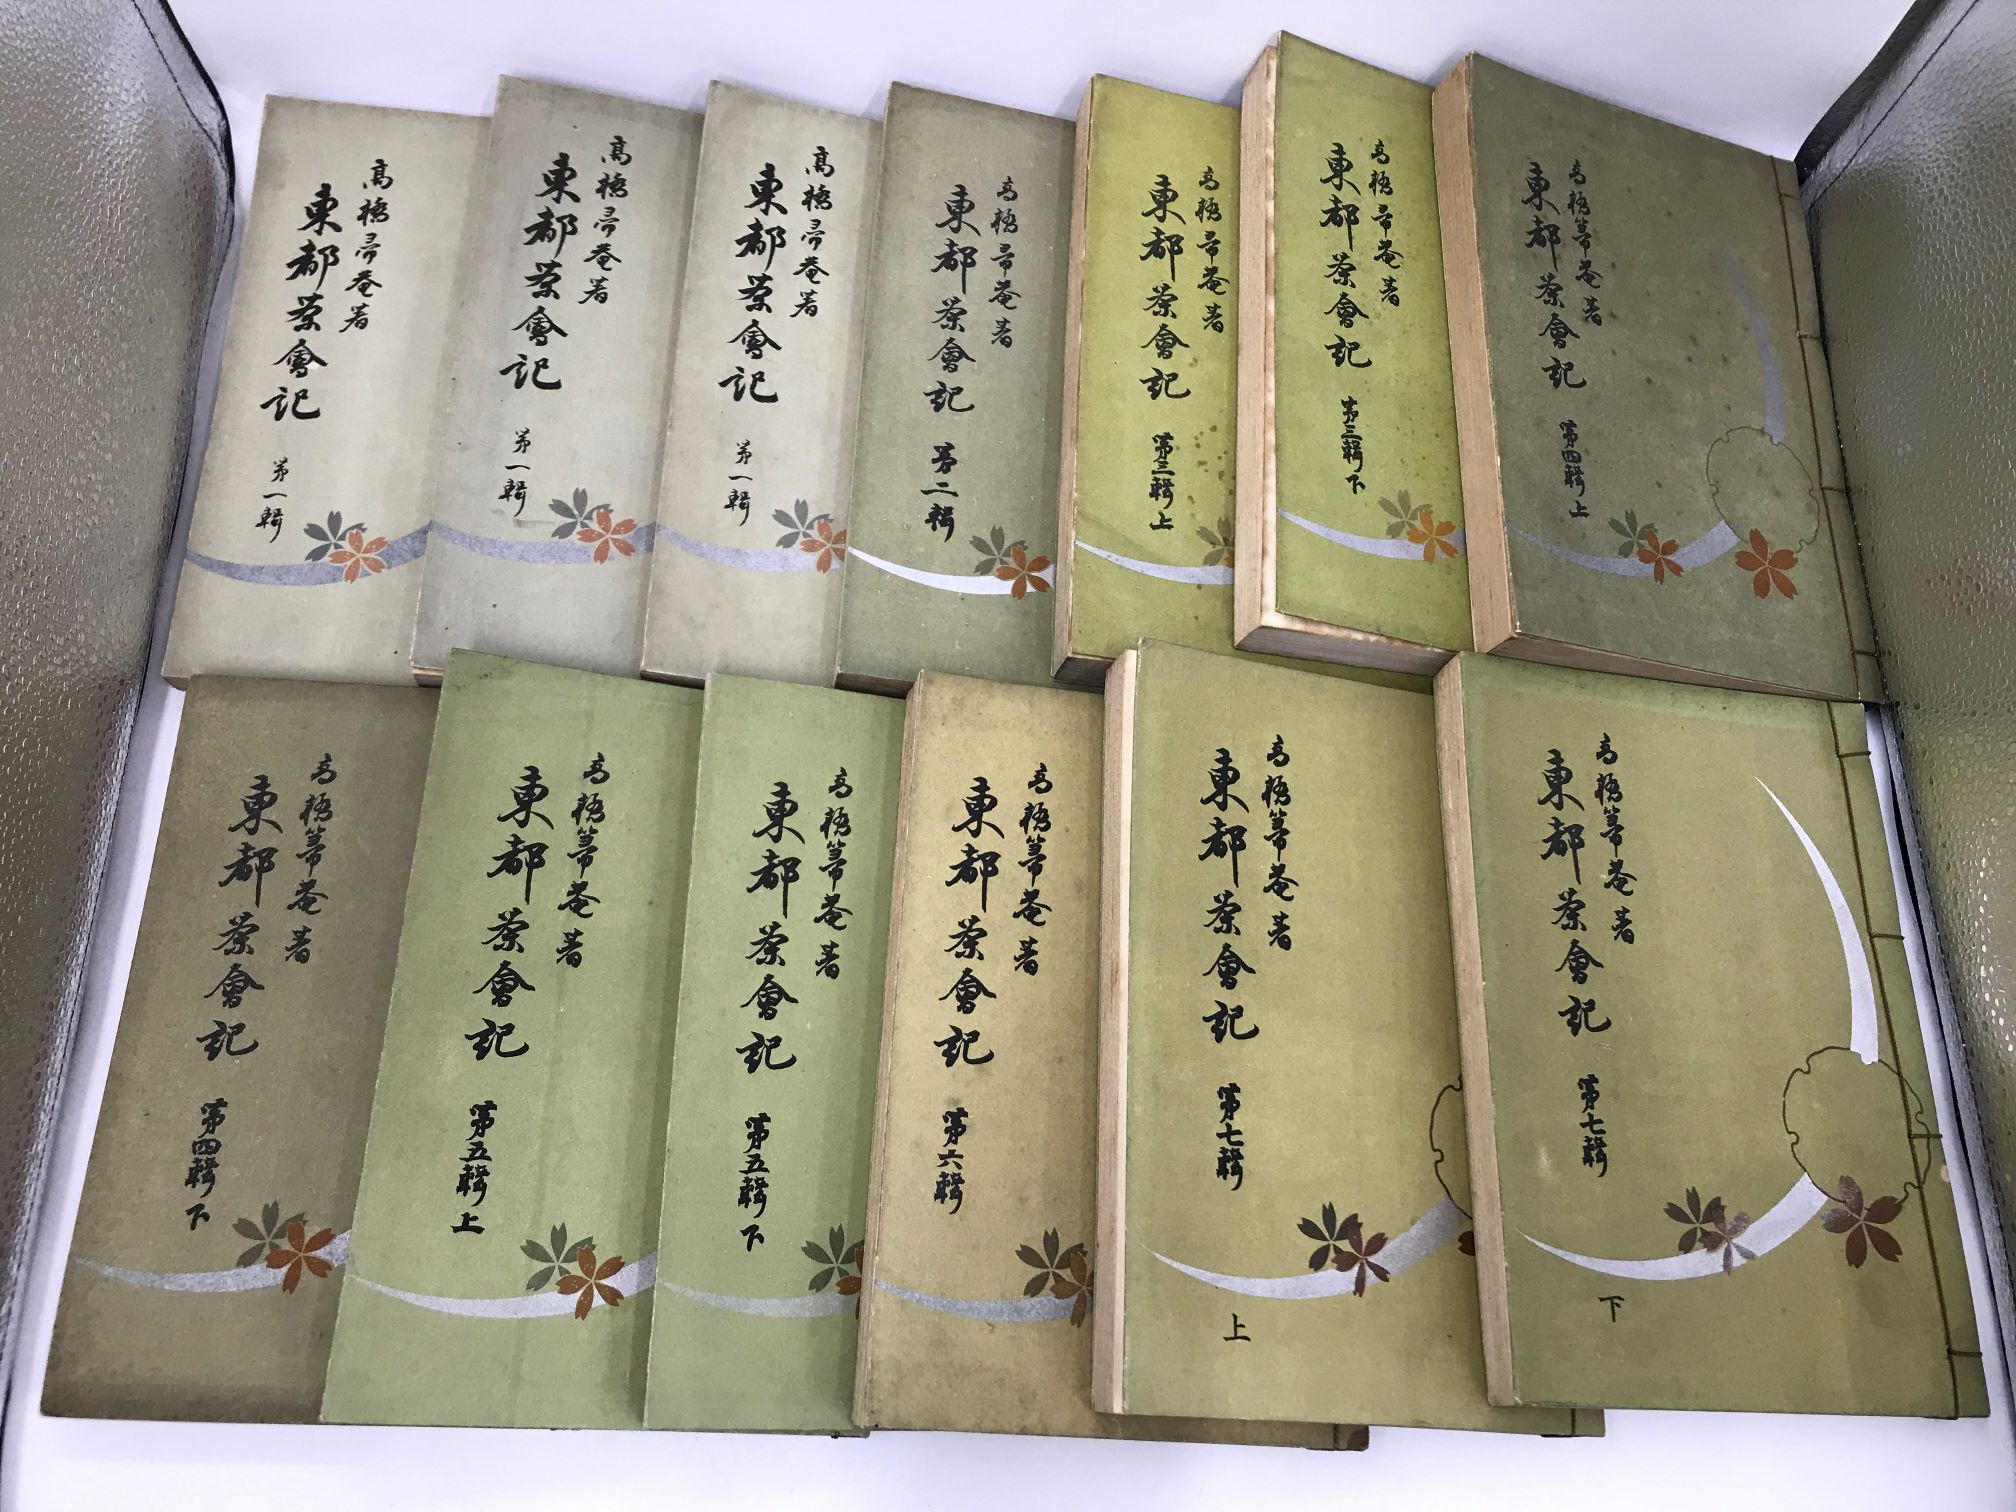 高橋帚庵著
東都茶會記
第一輯
高橋帚庵著
東都茶會記
第一輯
高橋帚庵著
東都茶會記
第一輯
高橋帚庵著
東都茶會記
第二輯
高橋帚庵著
東都茶會記
第三輯上
高橋帚庵著
東都茶會記
第三輯下
高橋箒庵著
東都茶會記
第四輯上
高橋箒庵著
東都茶會記
第四輯下
高橋箒庵著
東都茶會記
第五輯上
高橋箒庵著
東都茶會記
第五輯下
高橋箒庵著
東都茶會記
第六輯
高橋箒庵著
東都茶會記
第七輯
上
高橋箒庵著
東都茶會記
第七輯
下